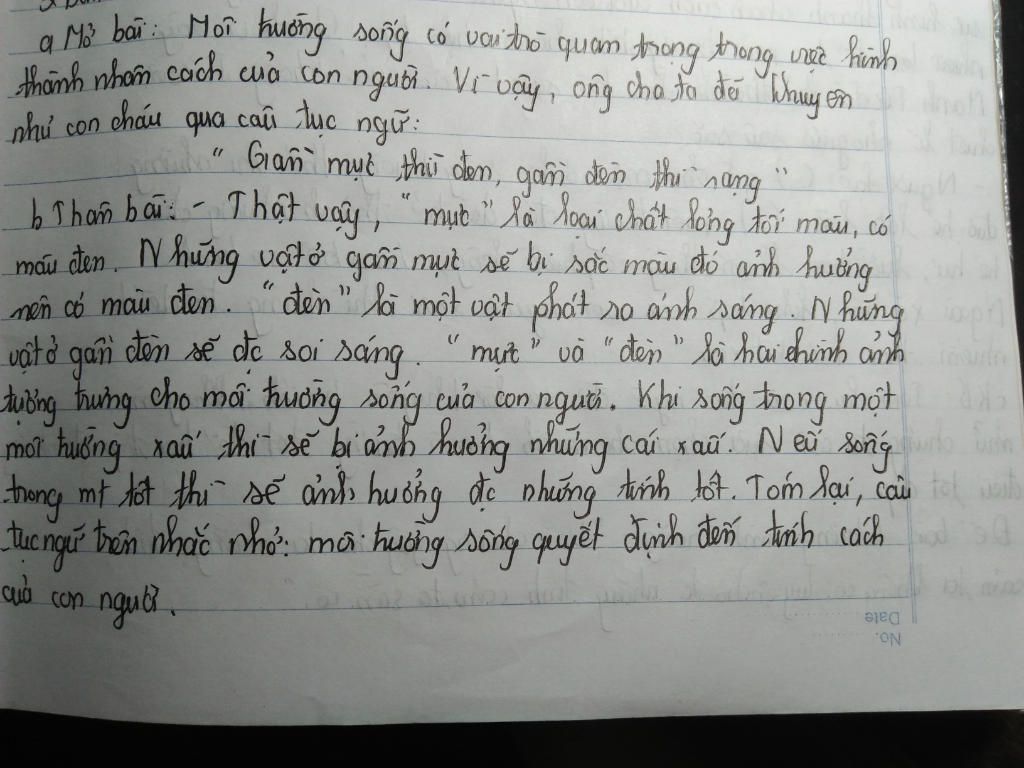 a, Mở bài: Môi trường sống có vai trò quan trọng trong việc hình
thành nhân cách của con người. Vì vậy, ông cha ta đã khuyên
như con cháu qua câu tục ngữ:
" Gần mực thì đen, gần đèn thì sạng "
b, Thân bài: - Thật vậy, " mực " là loại chất lỏng tối màu, có
màu đen. Những vật ở gần mực sẽ bị sắc màu đó ảnh hưởng
nên có màu đen. " đèn " là một vật phát ra ánh sáng. Những
vật ở gần đèn sẽ đc soi sáng. " mực " và " đèn " là hai hình ảnh
tượng trưng cho môi trường sống của con người. Khi sống trong một
môi trường xấu thì sẽ bị ảnh hưởng những cái xấu. Nếu sống
trong mt tốt thì sẽ ảnh hưởng đc những tính tốt. Tóm lại, câu
tục ngữ trên nhắc nhở: môi trường sống quyết định đến tính cách
của con người.
Date
No.